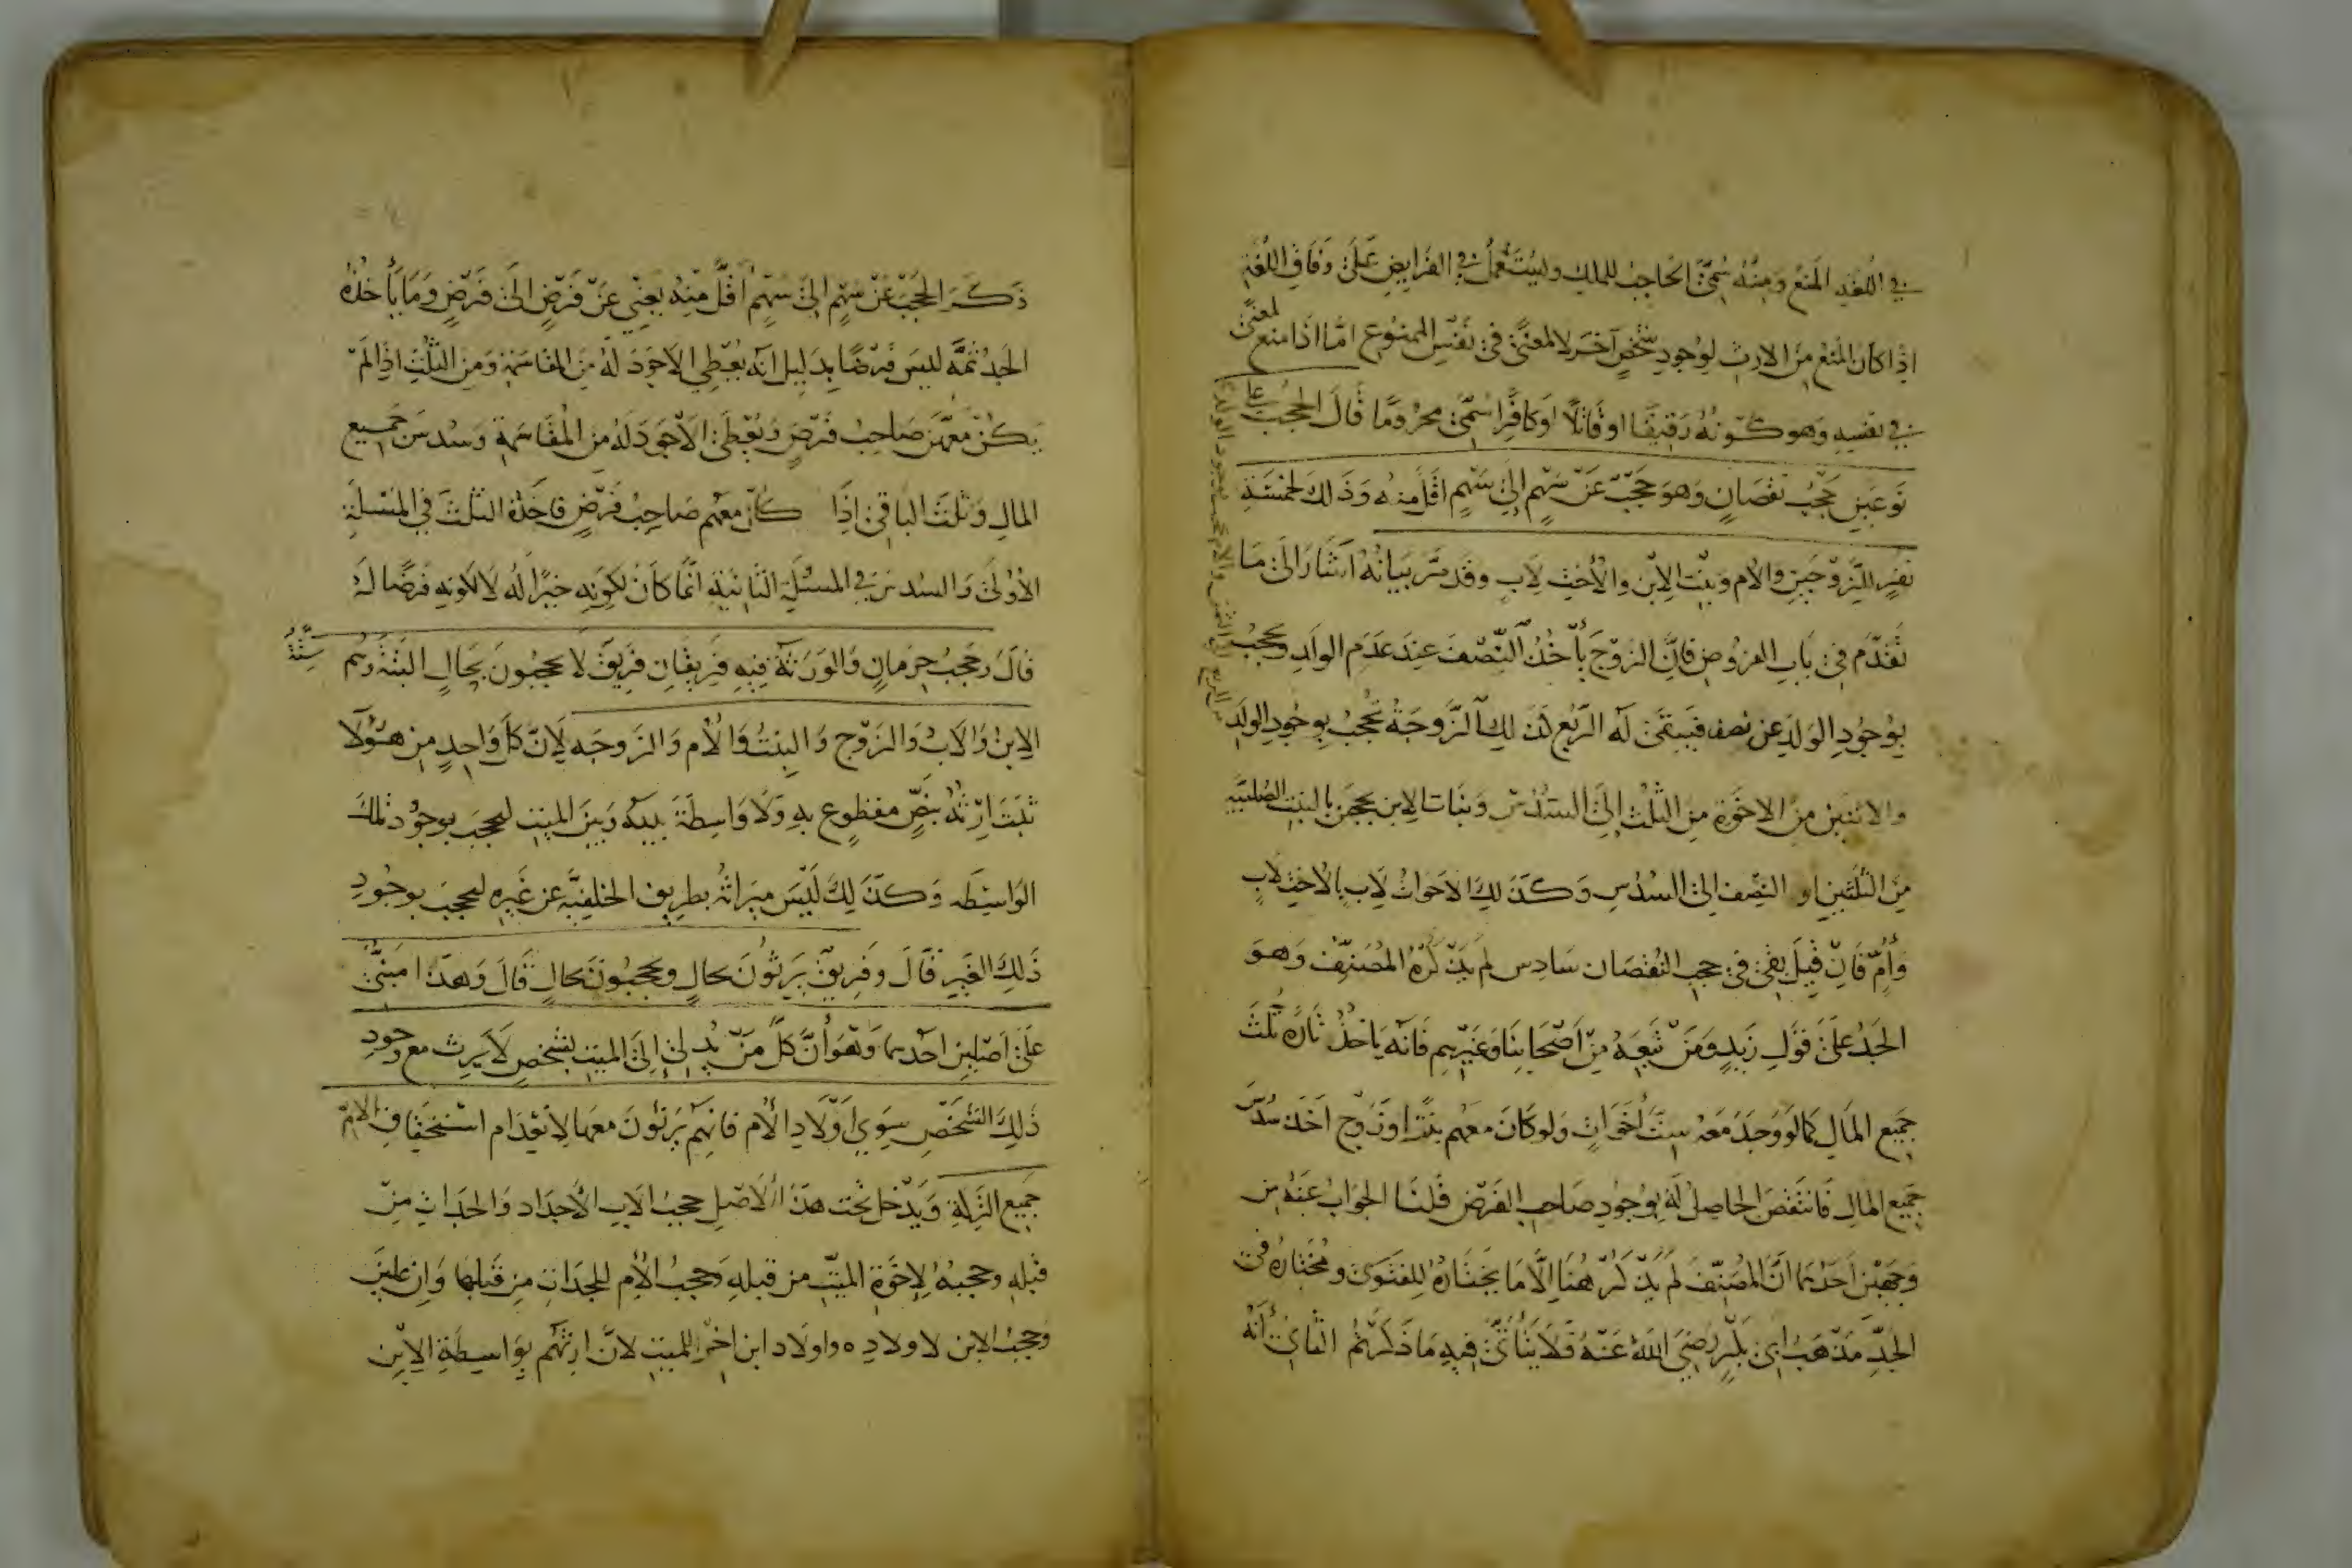 في اللغة المنع ومنه سمي الحاجب للملك ويستعمل في الفرايض على وفاق اللغة
اذا كان المنع من الارث لوجود شخص آخر لا لمعنى في نفس الممنوع اما اذا منع لمعنى
في نفسه وهو كونه رقيقا او قاتلا او كافرا سمي محروما قال الحجب على
نوعين حجب نقصان وهو حجب عن سهم الى سهم اقل منه وذلك لخمسة
نفر للزوجين والام وبنت الابن والاخت لاب وقد مر بيانه اشار الى ما
تقدم في باب الفروض فان الزوج يأخذ النصف عند عدم الولد ويحجب
بوجود الولد عن نصفه فيبقى له الربع كذلك الزوجة تحجب بوجود الولد
من الربع الى الثمن والام تحجب بوجود الولد
والاثنين من الاخوة من الثلث الى السدس وبنات الابن يحجبن بالبنت الصلبية
من الثلثين او النصف الى السدس وكذلك الاخوات لاب بالاخت لاب
وأم فان قيل بقي في حجب النقصان سادس لم يذكره المصنف وهو
الجد على قول زيد ومن تبعه من أصحابنا وغيرهم فانه يأخذ تارة ثلث
جميع المال كما لو وجد معه ست أخوات ولو كان معهم بنت او زوج اخذ سدس
جميع المال فانتقص الحاصل له بوجود صاحب الفرض قلنا الجواب عنه من
وجهين احدهما ان المصنف لم يذكر هنا الا ما يختاره للفتوى ومختاره في
الجد مذهب ابي بكر رضي الله عنه فلا يتأتى فيه ما ذكرتم الثاني أنه
ذكر الحجب عن سهم الى سهم اقل منه يعني عن فرض الى فرض وما يأخذه
الجد ثمه ليس فرضا بدليل انه يعطى الاجود له من المقاسمة ومن الثلث اذا لم
يكن معهم صاحب فرض ويعطى الاجود له من المقاسمة وسدس جميع
المال وثلث الباقي اذا كان معهم صاحب فرض فاخذه الثلث في المسئلة
الاولى والسدس في المسئلة الثانية انما كان لكونه خيرا له لا لكونه فرضا له
قال وحجب حرمان والورثة فيه فريقان فريق لا يحجبون بحال البتة وهم ستة
الابن والاب والزوج والبنت والام والزوجه لان كل واحد من هؤلا
ثبت ارثه بنص مقطوع به ولا واسطة بينه وبين الميت ليحجب بوجود تلك
الواسطه وكذلك ليس ميراثه بطريق الخلفية عن غيره ليحجب بوجود
ذلك الغير قال وفريق يرثون بحال ويحجبون بحال قال وهذا مبني
على اصلين احدهما وهو أن كل من يدلي الى الميت بشخص لا يرث مع وجود
ذلك الشخص سوى اولاد الأم فانهم يرثون معها لانعدام استحقاق الام
جميع التركة ويدخل تحت هذا الاصل حجب الاب الأجداد والجدات من
قبله وحجبه لاخوة الميت من قبله وحجب الأم للجدات من قبلها وان علين
وحجب الابن لاولاده واولاد ابن اخر للميت لان ارثهم بواسطة الابن